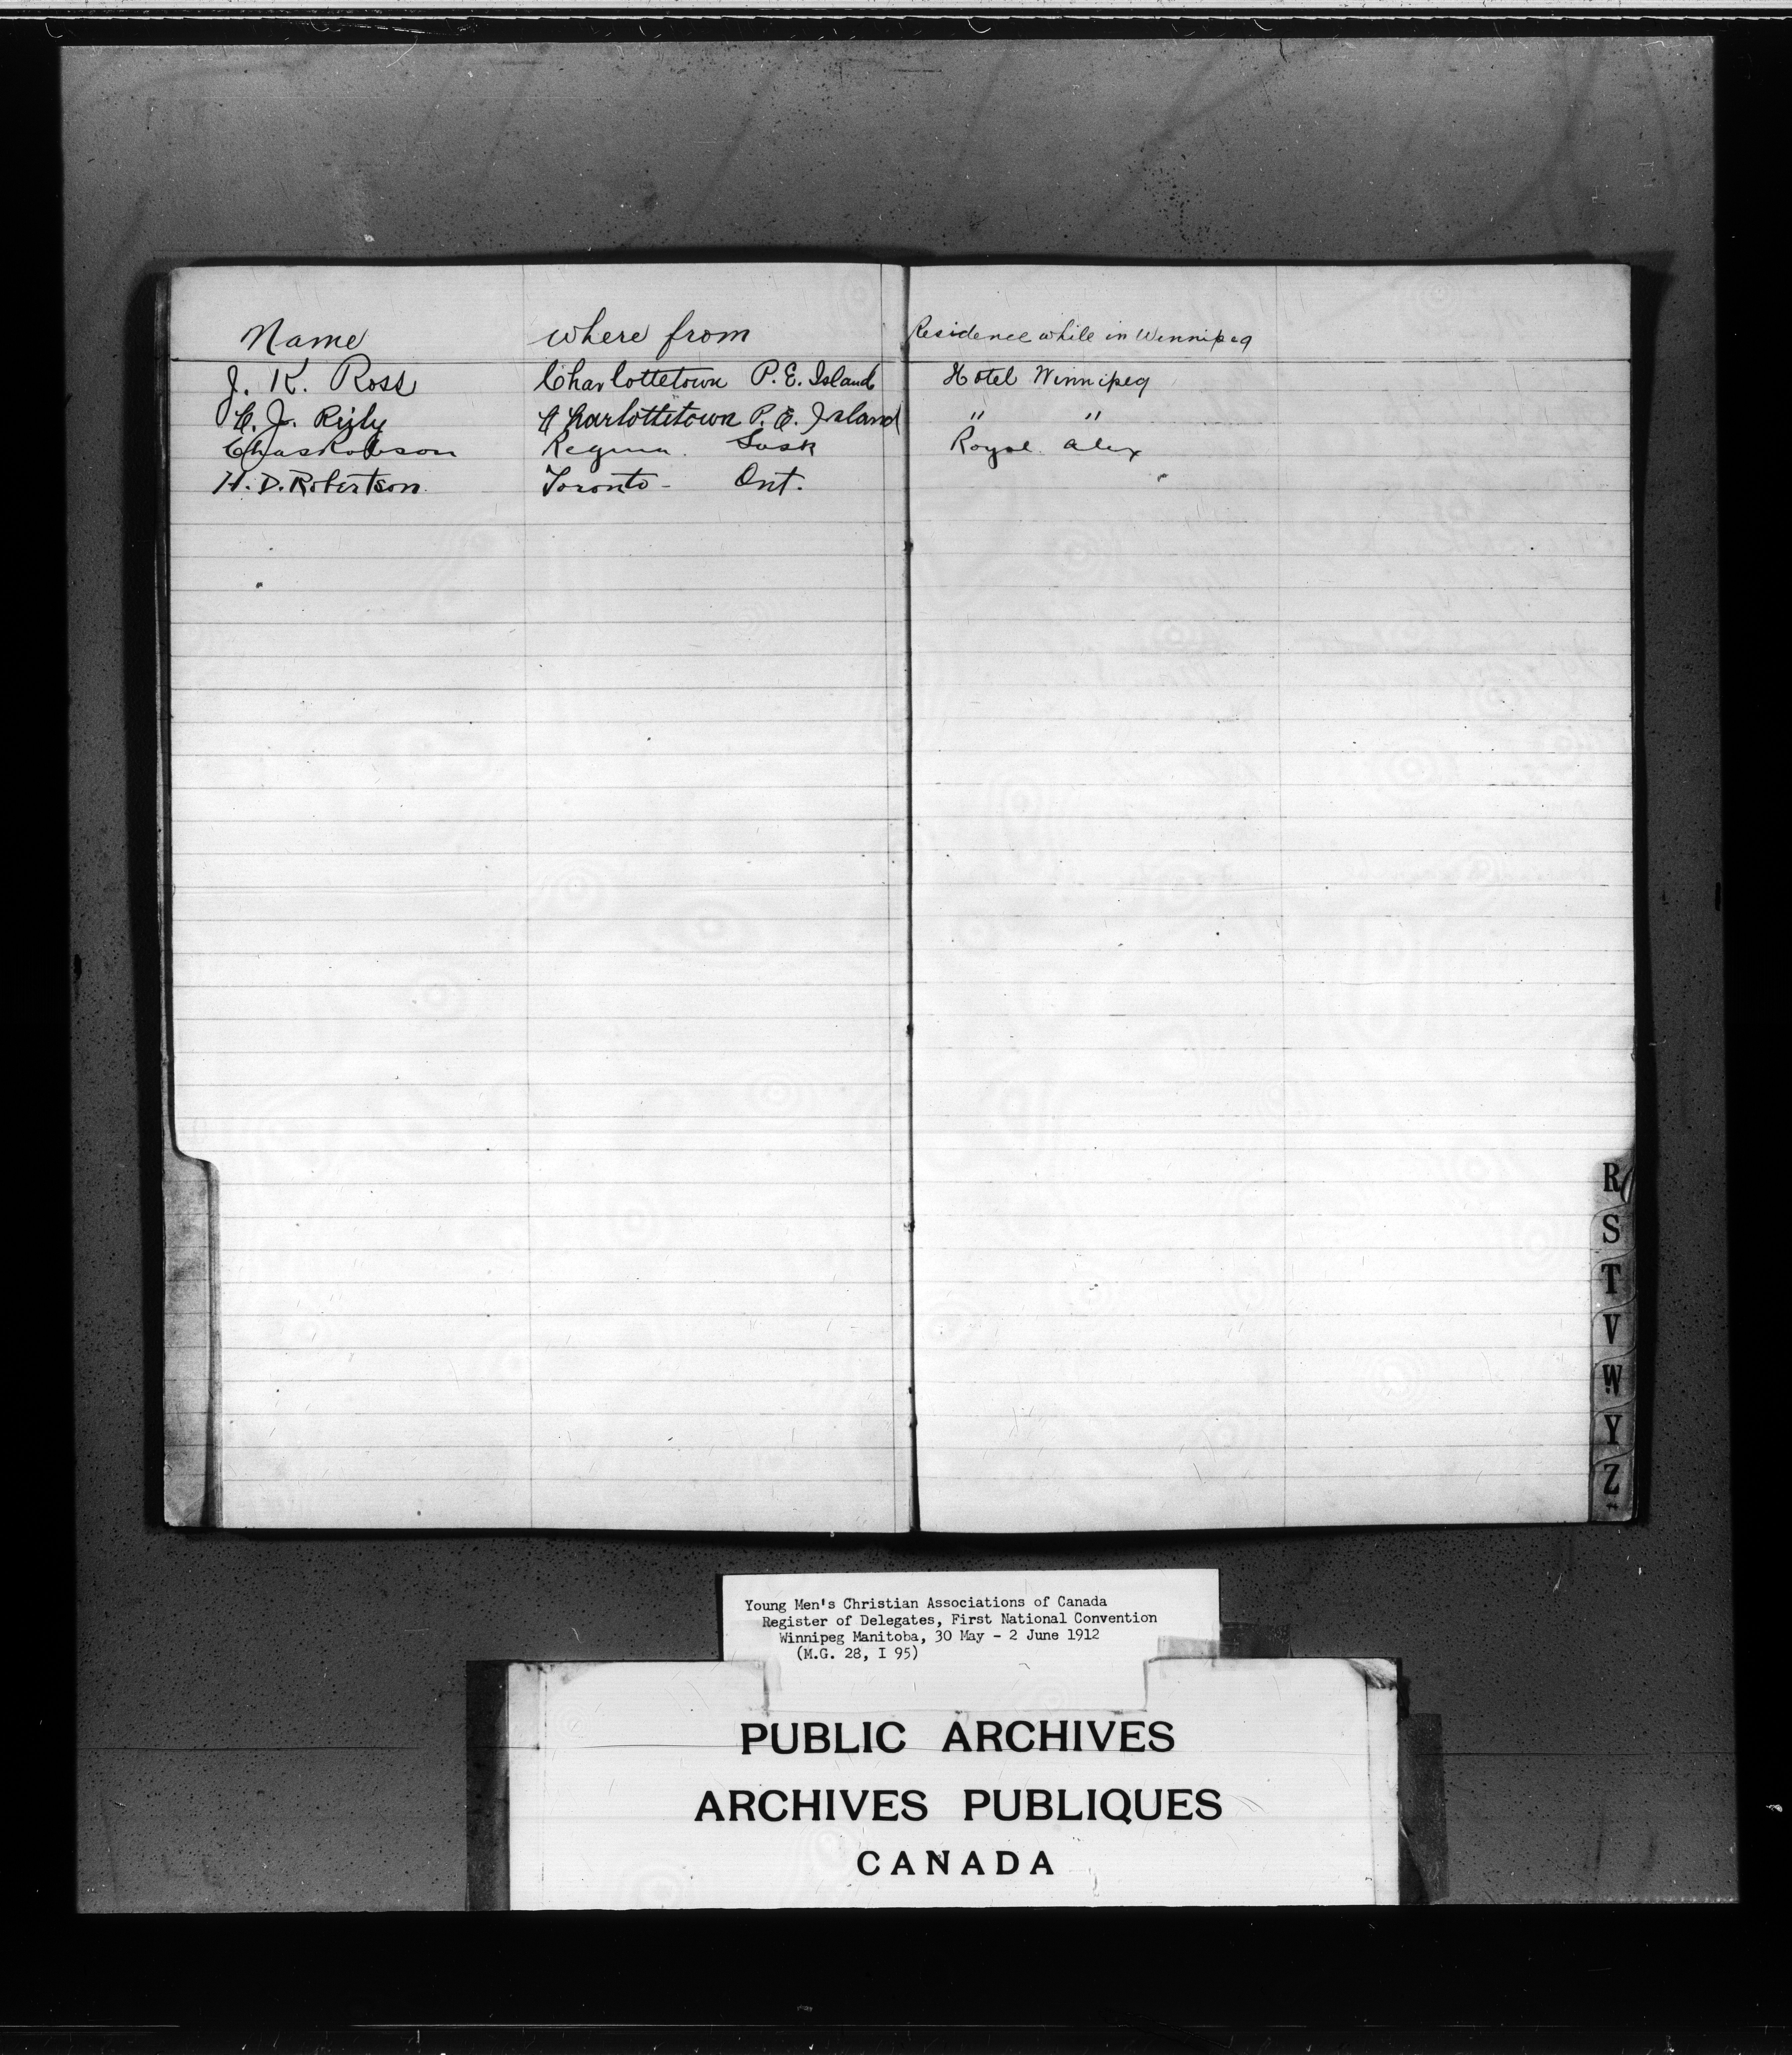 Name where from Residence while in Winnipeg
J. K. Ross Charlottetown P. E. Island Hotel Winnipeg
C. J. Charlottetown P. E. Island " "
Chas Robson Regina. Sask Royal. Alex
H. D. Robertson. Toronto - Ont.
R
S
T
V
W
Y
Z
Young Men's Christian Associations of Canada
Register of Delegates, First National Convention
Winnipeg Manitoba, 30 May - 2 June 1912
(M.G. 28, I 95)
PUBLIC ARCHIVES
ARCHIVES PUBLIQUES
CANADA